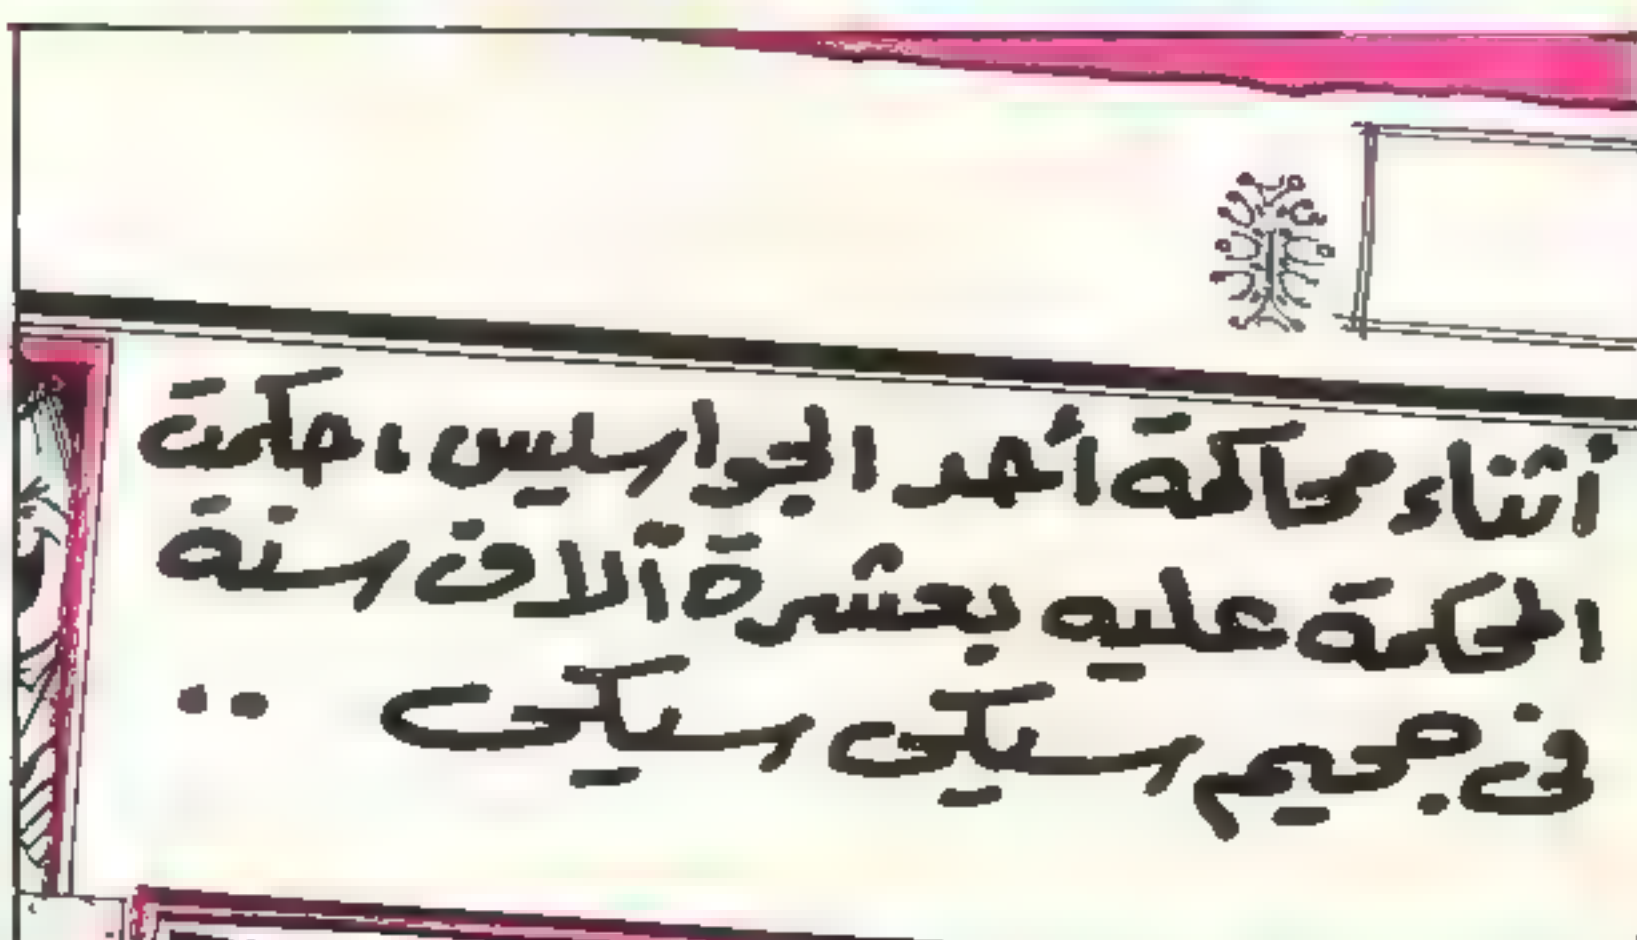 أثناء محاكمة أحد الجواسيس، حكمت
المحكمة عليه بعشرة آلاف سنة
فى جحيم سيكى سيكى ..